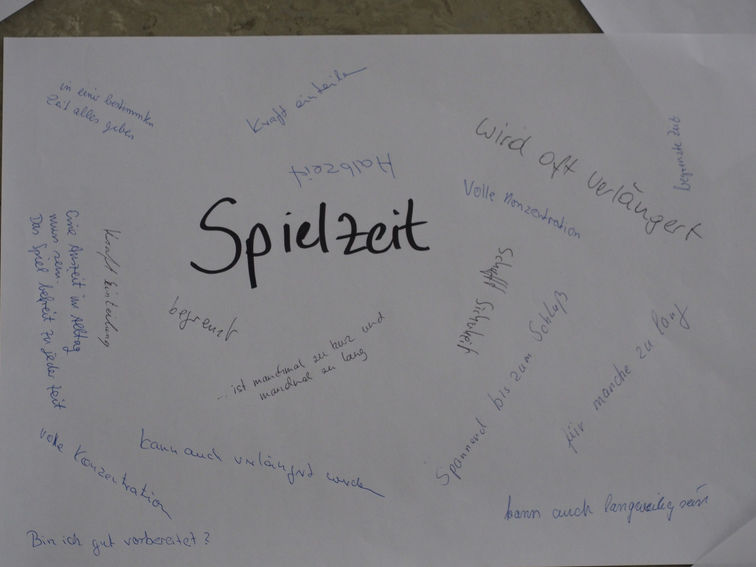 in einer bestimmten
Zeit alles geben
Kraft einteilen
wird oft verlängert
begrenzte Zeit
Halbzeit
Volle Konzentration
Spielzeit
Eine Auszeit im Alltag
muss sein.
Das Spiel befreit zu jeder Zeit
Kraft Einteilung
begrenzt
schafft Sicherheit
... ist manchmal zu kurz und
manchmal zu lang
Spannend bis zum Schluß
für manche zu lang
volle Konzentration
kann auch verlängert werden
kann auch langweilig sein
Bin ich gut vorbereitet?